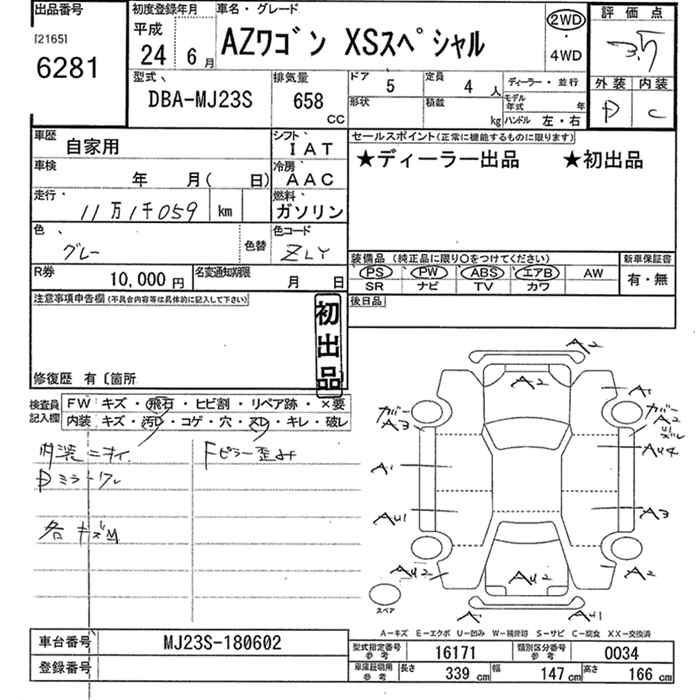 出品番号
[2165]
6281
初度登録年月
平成
24 6月
車名・グレード
AZワゴン XSスペシャル
2WD
・
4WD
評価点
3.5
外装 内装
D C
型式
DBA-MJ23S
排気量
658
CC
ドア 5
定員 4 人
形状
積載 kg
ディーラー・並行
モデル年式 年
ハンドル 左・右
車歴 自家用
シフト IAT
車検 年 月( 日)
冷房 AAC
走行 11万1千059 km
燃料 ガソリン
色 グレー
色替
色コード ZLY
R券 10,000円
名変通知期限 月 日
セールスポイント(正常に機能するものに限ります)
★ディーラー出品 ★初出品
装備品 (純正品に限り○をつけてください)
PS PW ABS エアB AW
SR ナビ TV カワ
新車保証書
有・無
後日品
注意事項申告欄(不具合内容等は具体的に記入して下さい)
初出品
修復歴 有〔箇所
検査員記入欄
FW キズ・飛石・ヒビ割・リペア跡・×要
内装 キズ・汚D・コゲ・穴・スD・キレ・破レ
内装ニオイ
Dミラーワレ
各キズM
Fピラー歪み
A2
A2
A1
カバー
A3
カバー
A2
AU4
A1
AU1
A3
AU2
AU2
A2
A1
AU1
スペア
A-キズ E-エクボ U-凹み W-補修跡 S-サビ C-腐食 XX-交換済
車台番号 MJ23S-180602
登録番号
型式指定番号 参考 16171
類別区分番号 参考 0034
車庫証明用 参考 長さ 339 cm 幅 147 cm 高さ 166 cm